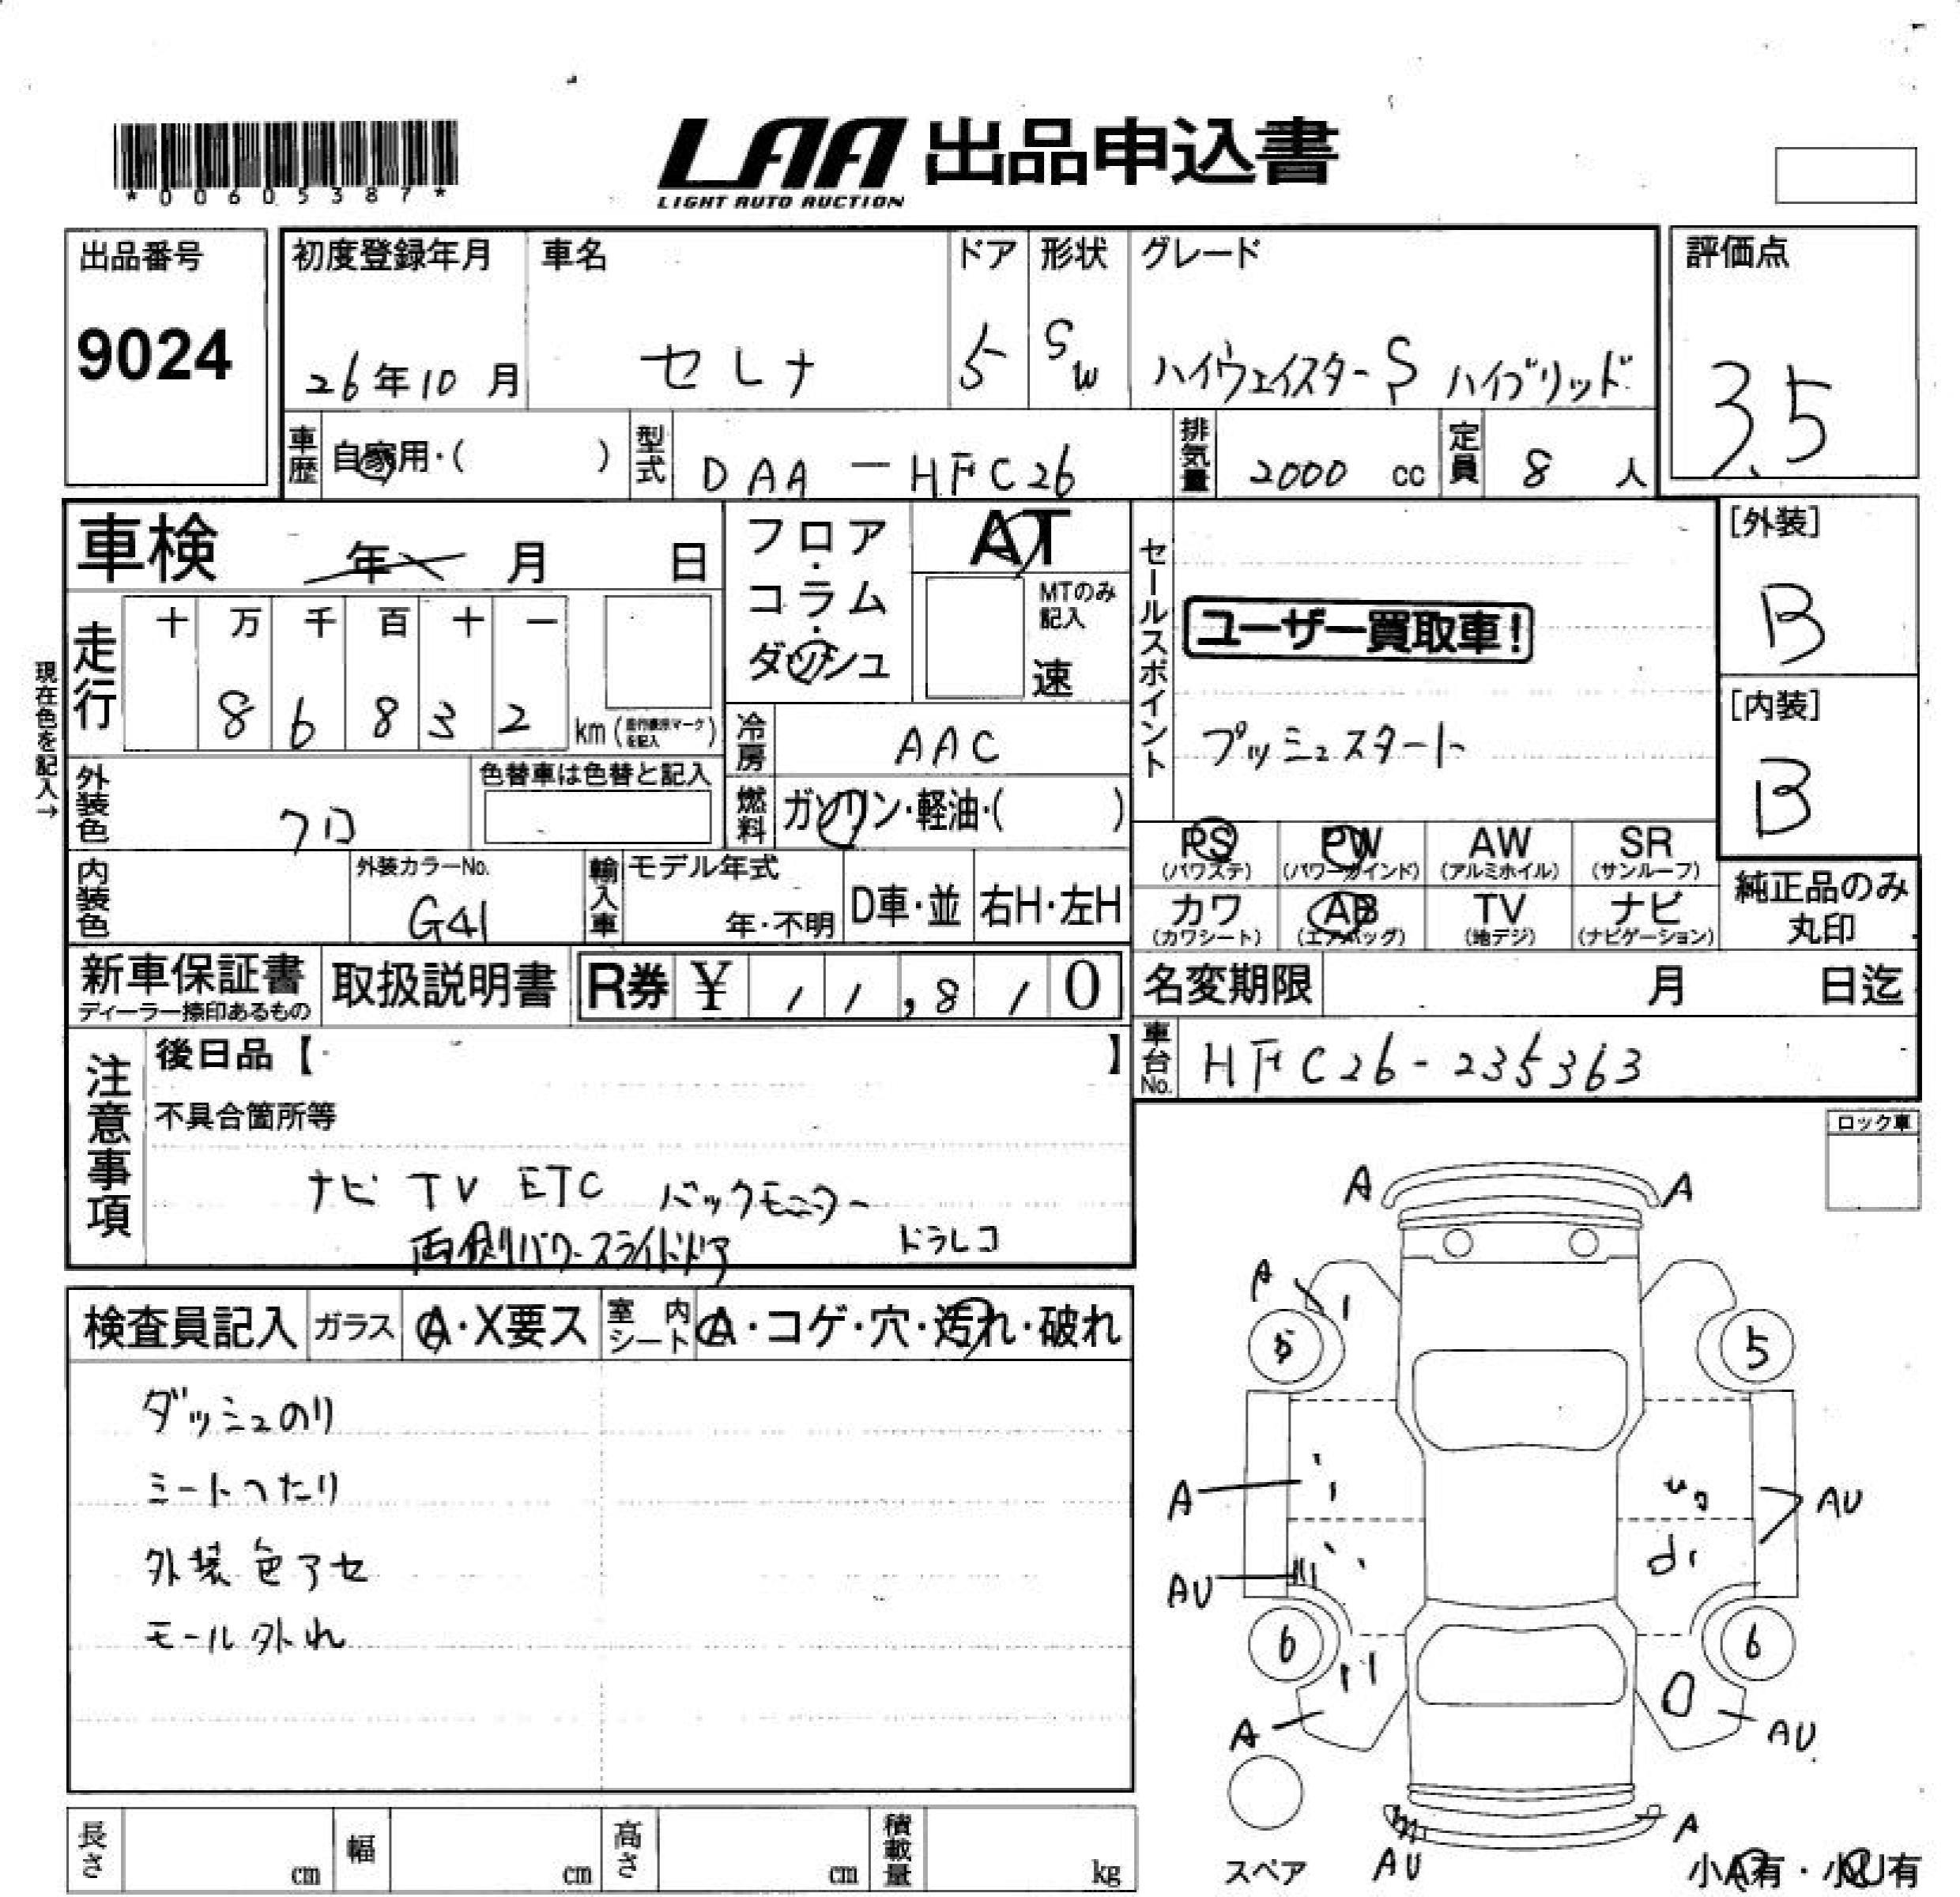 *00605387*
LAA 出品申込書
LIGHT AUTO AUCTION
出品番号
9024
初度登録年月
26年10月
車名
セレナ
ドア
5
形状
SW
グレード
ハイウェイスターS ハイブリッド
評価点
3.5
車歴
自家用・( )
型式
DAA-HFC26
排気量
2000 cc
定員
8 人
車検 年 月 日
フロア・コラム・ダッシュ
AT
MTのみ記入
速
セールスポイント
ユーザー買取車!
プッシュスタート
[外装]
B
[内装]
B
現在色を記入→
走行
十 万 千 百 十 一
8 6 8 3 2 km (走行表示マークを記入)
冷房
AAC
燃料
ガソリン・軽油・( )
外装色
クロ
色替車は色替と記入
内装色
外装カラーNo.
G41
輸入車
モデル年式
年・不明
D車・並
右H・左H
PS (パワステ)
PW (パワーウインド)
AW (アルミホイル)
SR (サンルーフ)
カワ (カワシート)
AB (エアバッグ)
TV (地デジ)
ナビ (ナビゲーション)
純正品のみ丸印
新車保証書
ディーラー捺印あるもの
取扱説明書
R券 ¥ 1 1,8 1 0
名変期限 月 日迄
車台No.
HFC26-235363
注意事項
後日品【 】
不具合箇所等
ナビ TV ETC バックモニター
両側パワースライドドア ドラレコ
ロック車
検査員記入
ガラス
A・X要ス
室内シート
A・コゲ・穴・汚れ・破れ
ダッシュのり
シートへたり
外装色アセ
モール外れ
A A
A
5 5
A AU
AU
6 6
A AU
AU A
スペア
小A有・小U有
長さ cm
幅 cm
高さ cm
積載量 kg